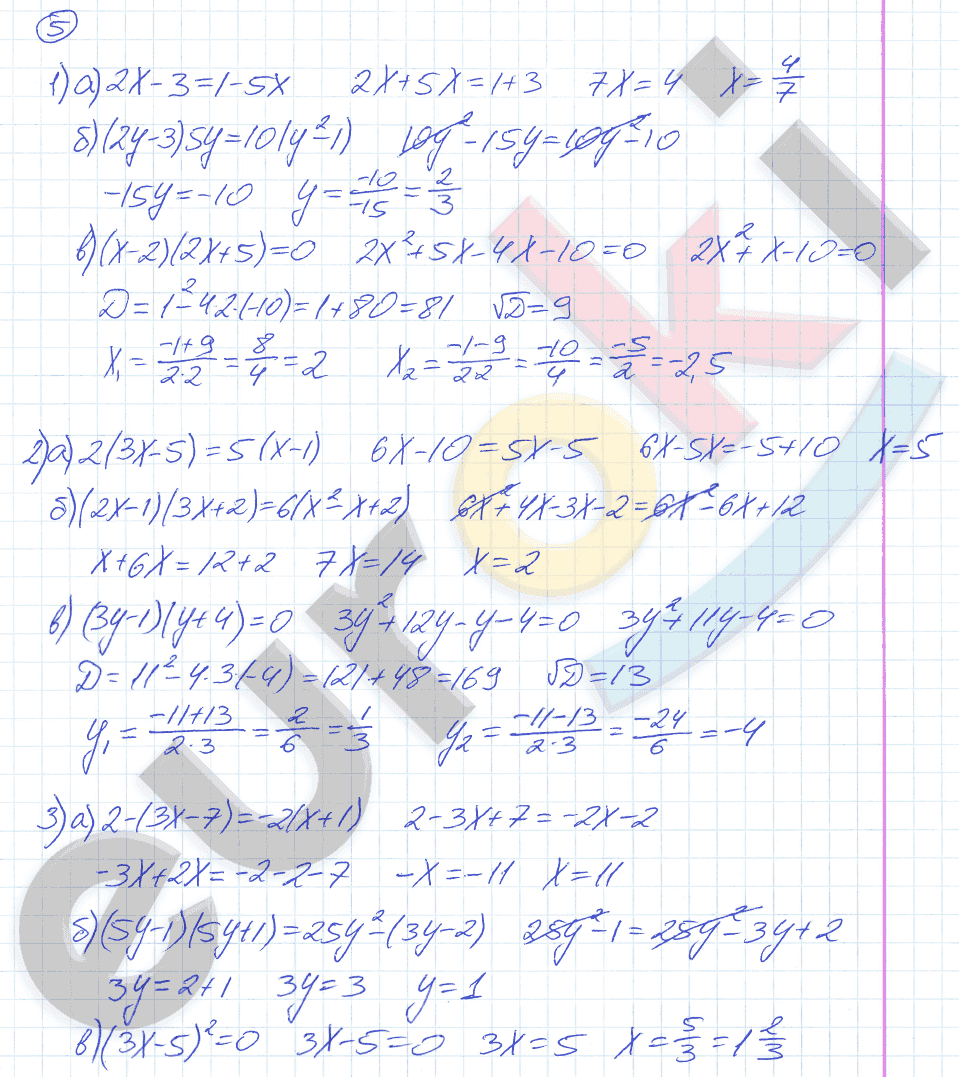 5
1) а) 2x-3=1-5x 2x+5x=1+3 7x=4 x=4/7
б) (2y-3)5y=10(y²-1) 10y²-15y=10y²-10
-15y=-10 y=-10/-15=2/3
в) (x-2)(2x+5)=0 2x²+5x-4x-10=0 2x²+x-10=0
D=1²-4·2·(-10)=1+80=81 √D=9
x₁=-1+9/2·2=8/4=2 x₂=-1-9/2·2=-10/4=-5/2=-2,5
2) а) 2(3x-5)=5(x-1) 6x-10=5x-5 6x-5x=-5+10 x=5
б) (2x-1)(3x+2)=6(x²-x+2) 6x²+4x-3x-2=6x²-6x+12
x+6x=12+2 7x=14 x=2
в) (3y-1)(y+4)=0 3y²+12y-y-4=0 3y²+11y-4=0
D=11²-4·3·(-4)=121+48=169 √D=13
y₁=-11+13/2·3=2/6=1/3 y₂=-11-13/2·3=-24/6=-4
3) а) 2-(3x-7)=-2(x+1) 2-3x+7=-2x-2
-3x+2x=-2-2-7 -x=-11 x=11
б) (5y-1)(5y+1)=25y²-(3y-2) 25y²-1=25y²-3y+2
3y=2+1 3y=3 y=1
в) (3x-5)²=0 3x-5=0 3x=5 x=5/3=1 2/3
euroki